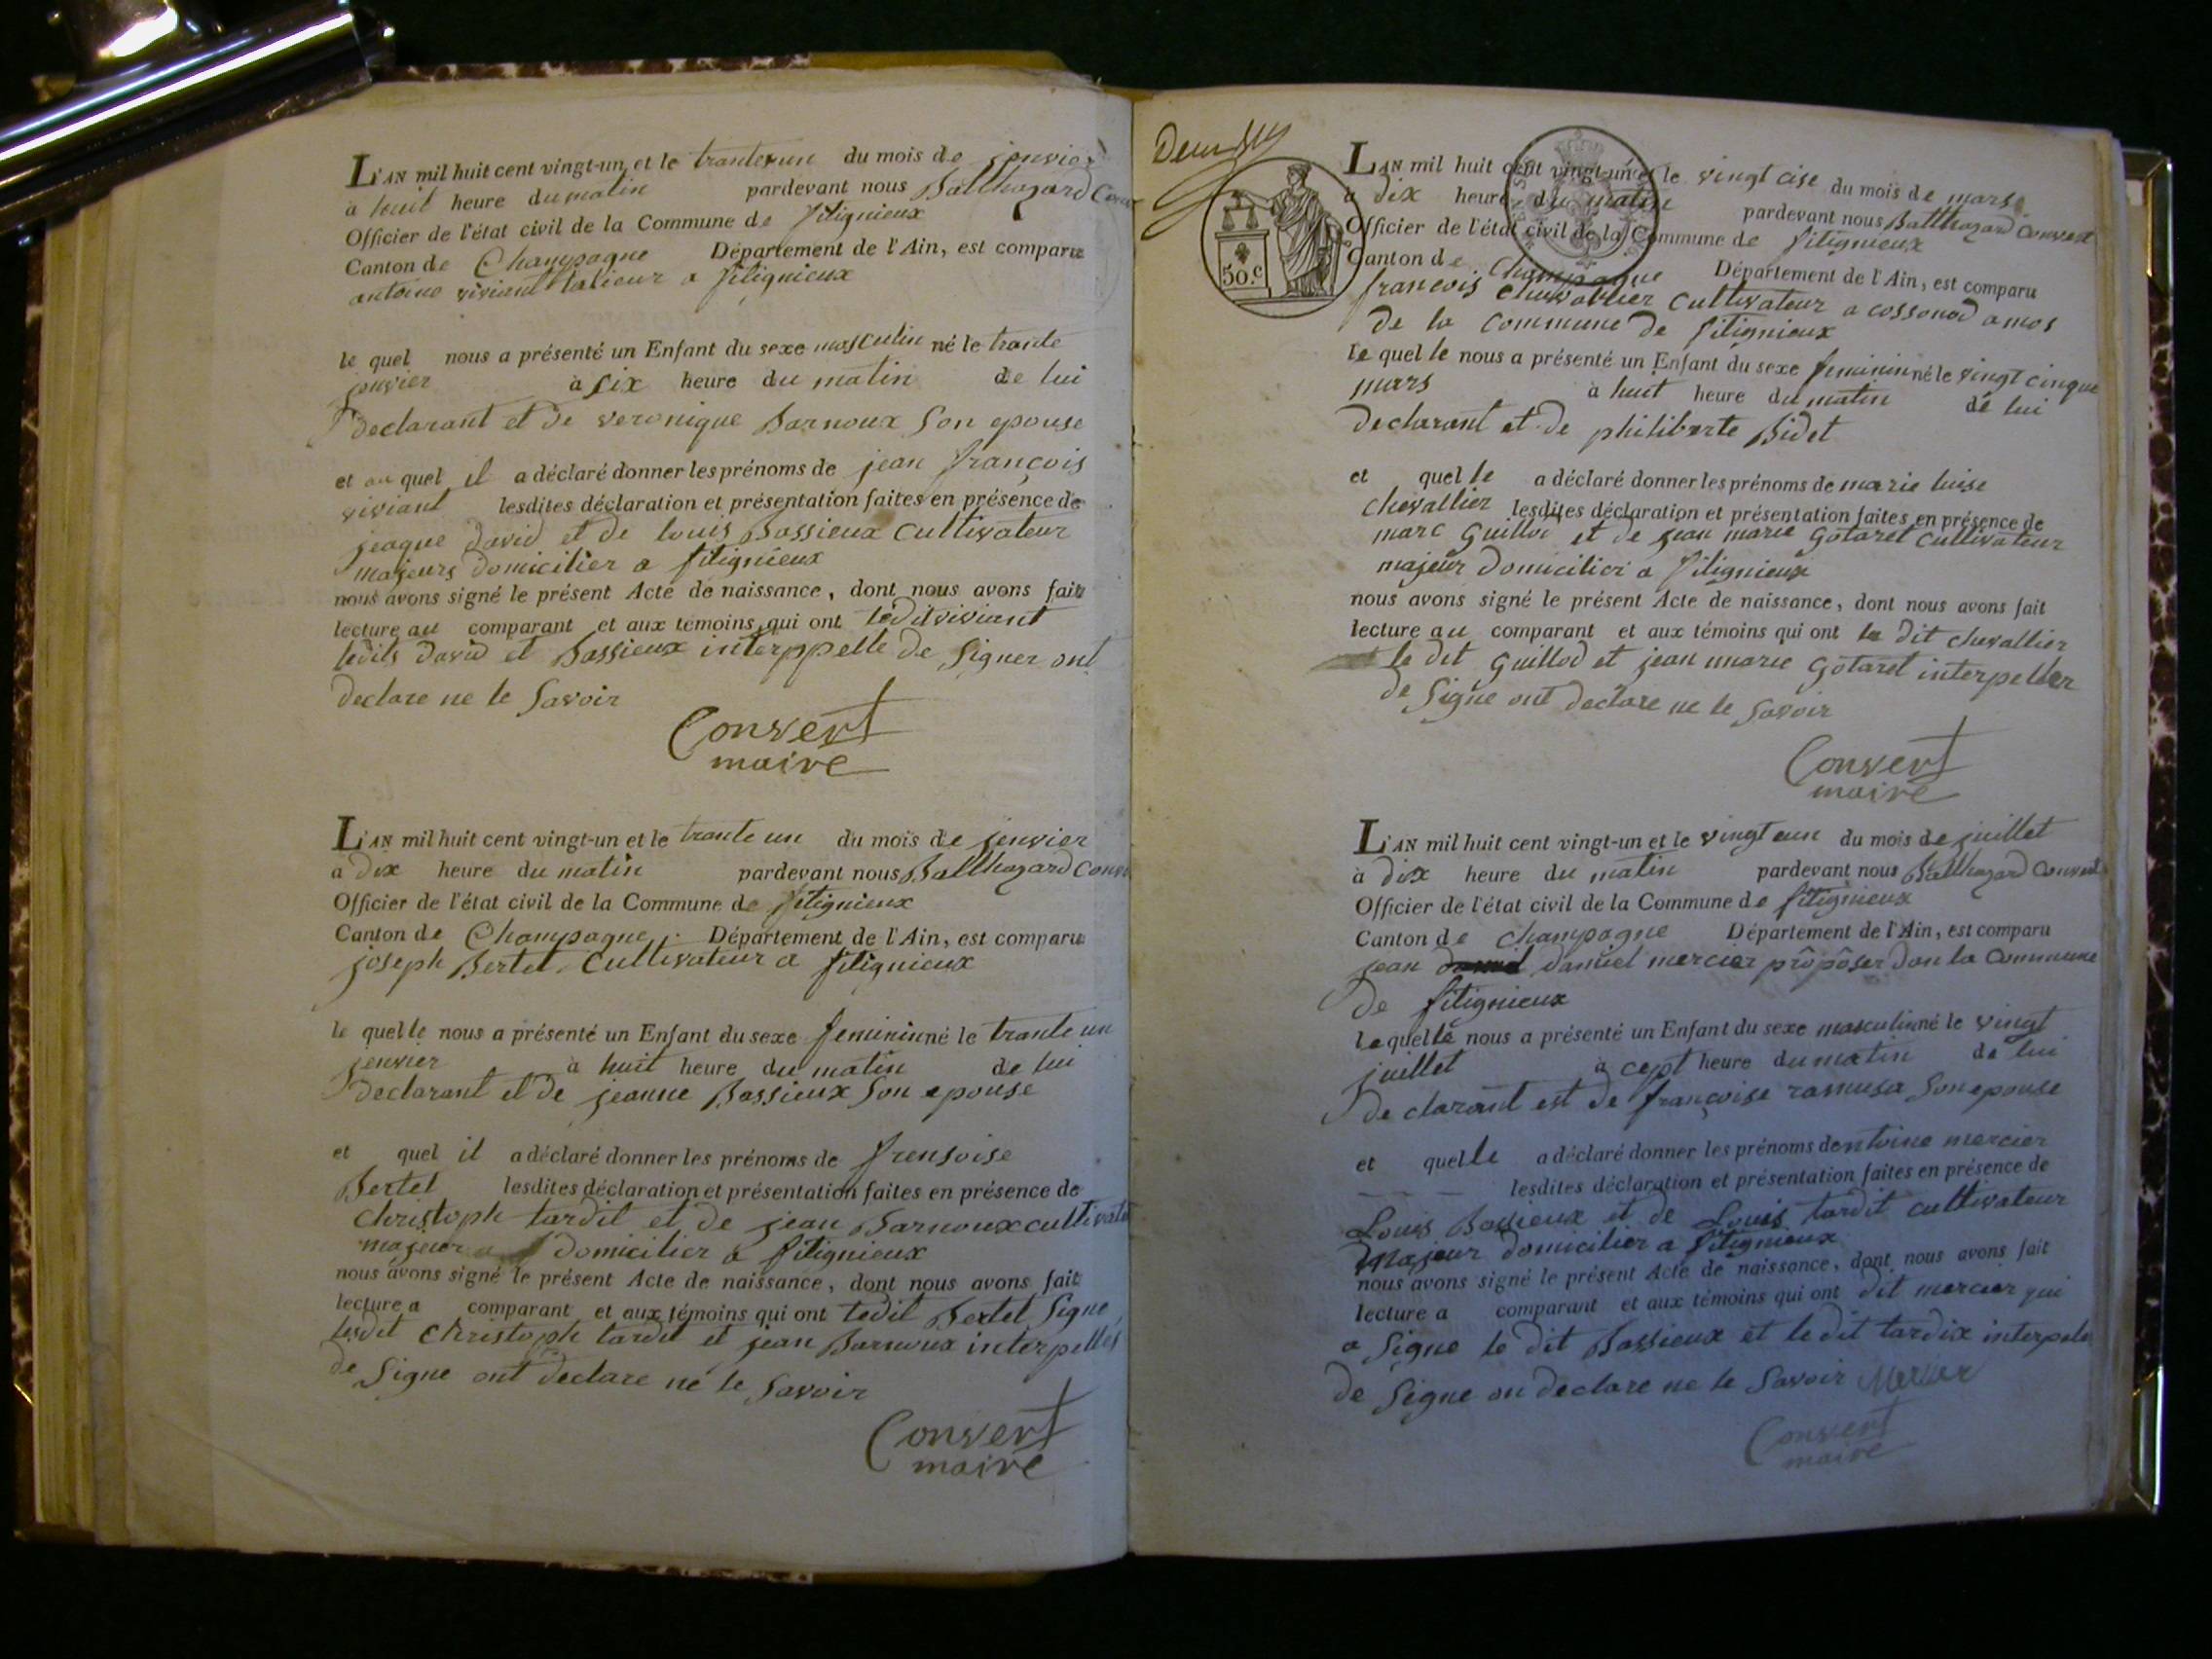 L'AN mil huit cent vingt-un et le trante un du mois de jenvier
à huit heure du matin pardevant nous Balthazard Conv
Officier de l'état civil de la Commune de fitignieux
Canton de Champagne Département de l'Ain, est comparu
antoine viviant talieur a fitignieux
le quel nous a présenté un Enfant du sexe masculin né le trante
jenvier à six heure du matin de lui
declarant et de veronique Barnoux son epouse
et au quel il a déclaré donner les prénoms de jean françois
viviant lesdites déclaration et présentation faites en présence de
jeaque david et de louis Bassieux cultivateur
majeurs domicilier a fitignieux
nous avons signé le présent Acte de naissance, dont nous avons fait
lecture au comparant et aux témoins qui ont ledit viviant
ledits david et Bassieux interppelle de signer ont
declare ne le savoir
Convert
maire
L'AN mil huit cent vingt-un et le trante un du mois de jenvier
à dix heure du matin pardevant nous Balthazard Conv
Officier de l'état civil de la Commune de fitignieux
Canton de Champagne Département de l'Ain, est comparu
joseph Bertet Cultivateur a fitignieux
le quelle nous a présenté un Enfant du sexe feminin né le trante un
jenvier à huit heure du matin de lui
declarant et de jeanne Bassieux son epouse
et quel il a déclaré donner les prénoms de frensoise
Bertet lesdites déclaration et présentation faites en présence de
Christoph tardit et de jean Barnoux cultivate
majeur domicilier a fitignieux
nous avons signé le présent Acte de naissance, dont nous avons fait
lecture a comparant et aux témoins qui ont ledit Bertet signe
lesdit christoph tardit et jean Barnoux interpellés
de signe ont declare ne le savoir
Convert
maire
50.c
L'AN mil huit cent vingt-un et le vingt cise du mois de mars
à dix heure du matin pardevant nous Balthazard Convert
Officier de l'état civil de la Commune de fitignieux
Canton de Champagne Département de l'Ain, est comparu
francois chevallier cultivateur a cossonod amos
de la commune de fitignieux
le quel le nous a présenté un Enfant du sexe feminin né le vingt cinque
mars à huit heure du matin de lui
declarant et de philiberte Bidet
et quel le a déclaré donner les prénoms de marie luise
chevallier lesdites déclaration et présentation faites en présence de
marc Guillod et de jean marie Gotaret cultivateur
majeur domicilier a fitignieux
nous avons signé le présent Acte de naissance, dont nous avons fait
lecture au comparant et aux témoins qui ont le dit chevallier
le dit Guillod et jean marie Gotaret interpeller
de signe ont declare ne le savoir
Convert
maire
L'AN mil huit cent vingt-un et le vingt eun du mois de juillet
à dix heure du matin pardevant nous Balthazard Convert
Officier de l'état civil de la Commune de fitignieux
Canton de champagne Département de l'Ain, est comparu
jean daniel mercier prôpôser dan la Commune
de fitignieux
le quelle nous a présenté un Enfant du sexe masculin né le vingt
juillet à cept heure du matin de lui
declarant est de françoise ramusa son epouse
et quelle a déclaré donner les prénoms dentoine mercier
lesdites déclaration et présentation faites en présence de
Louis Bassieux et de Louis tardit cultivateur
majeur domicilier a fitignieux
nous avons signé le présent Acte de naissance, dont nous avons fait
lecture a comparant et aux témoins qui ont dit mercier qui
a signe le dit Bassieux et le dit tardix interpele
de signe on declare ne le savoir Mercier
Convert
maire